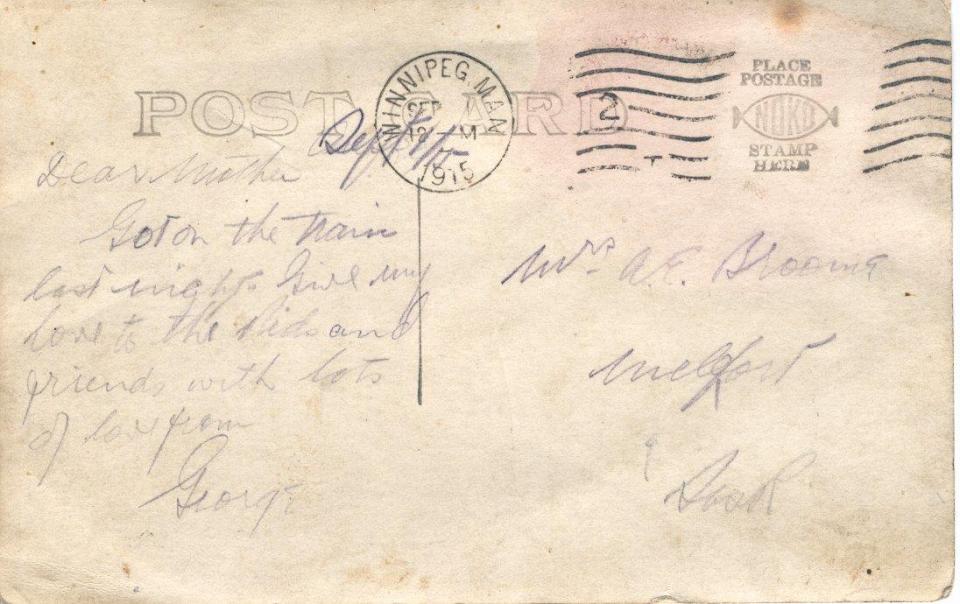 POST CARD
WINNIPEG, MAN
SEP
12 M
1915
2
PLACE
POSTAGE
NOKO
STAMP
HERE
Dear Mother
Got on the train
last night. Give my
love to the kids and
friends with lots
of love from
George
Mrs A.E. Broome
Melfort
Sask